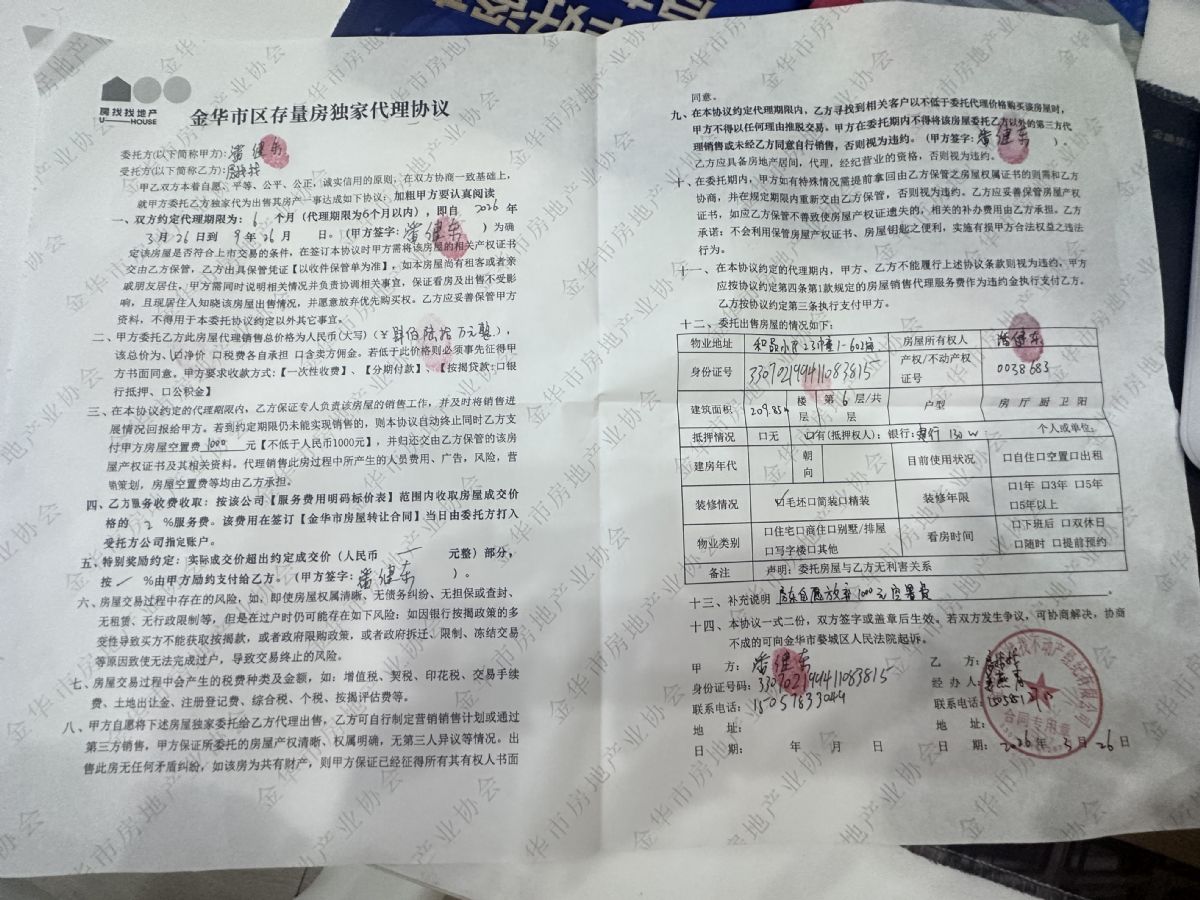 房找找地产
U HOUSE
金华市区存量房独家代理协议
委托方(以下简称甲方):潘健东
受托方(以下简称乙方):房找找
甲乙双方本着自愿、平等、公平、公正,诚实信用的原则,在双方协商一致基础上,
就甲方委托乙方独家代为出售其房产一事达成如下协议:加粗甲方要认真阅读
一、双方约定代理期限为:6 个月(代理期限为6个月以内),即自 2026 年
3月26日到 9年26月 日。(甲方签字:潘健东 )为确
定该房屋是否符合上市交易的条件,在签订本协议时甲方需将该房屋的相关产权证书
交由乙方保管,乙方出具保管凭证【以收件保管单为准】,如本房屋尚有租客或者亲
戚朋友居住,甲方需同时说明相关情况并负责协调相关事宜,保证看房及出售不受影
响,且现居住人知晓该房屋出售情况,并愿意放弃优先购买权。乙方应妥善保管甲方
资料,不得用于本委托协议约定以外其它事宜。
二、甲方委托乙方此房屋代理销售总价格为人民币(大写)(¥肆佰陆拾万元整),
该总价为、☑净价 口税费各自承担 口含卖方佣金。若低于此价格则必须事先征得甲
方书面同意。甲方要求收款方式:【一次性收费】、【分期付款】、【按揭贷款:口银
行抵押、口公积金】
三、在本协议约定的代理期限内,乙方保证专人负责该房屋的销售工作,并及时将销售进
展情况回报给甲方。若到约定期限仍未能实现销售的,则本协议自动终止同时乙方支
付甲方房屋空置费 1000 元【不低于人民币1000元】,并归还交由乙方保管的该房
屋产权证书及其相关资料。代理销售此房过程中所产生的人员费用、广告,风险,营
销策划,房屋空置费等均由乙方承担。
四、乙方服务收费收取:按该公司【服务费用明码标价表】范围内收取房屋成交价
格的 2 %服务费。该费用在签订【金华市房屋转让合同】当日由委托方打入
受托方公司指定账户。
五、特别奖励约定:实际成交价超出约定成交价(人民币 一 元整)部分,
按 / %由甲方励约支付给乙方。(甲方签字:潘健东 )。
六、房屋交易过程中存在的风险,如、即使房屋权属清晰、无债务纠纷、无担保或查封、
无租赁、无行政限制等,但是在过户时仍可能存在如下风险:如因银行按揭政策的多
变性导致买方不能获取按揭款,或者政府限购政策,或者政府拆迁、限制、冻结交易
等原因致使无法完成过户,导致交易终止的风险。
七、房屋交易过程中会产生的税费种类及金额,如:增值税、契税、印花税、交易手续
费、土地出让金、注册登记费、综合税、个税、按揭评估费等。
八、甲方自愿将下述房屋独家委托给乙方代理出售,乙方可自行制定营销销售计划或通过
第三方销售,甲方保证所委托的房屋产权清晰、权属明确,无第三人异议等情况。出
售此房无任何矛盾纠纷,如该房为共有财产,则甲方保证已经征得所有其有权人书面
同意。
九、在本协议约定代理期限内,乙方寻找到相关客户以不低于委托代理价格购买该房屋时,
甲方不得以任何理由推脱交易。甲方在委托期内不得将该房屋委托乙方以外的第三方代
理销售或未经乙方同意自行销售,否则视为违约。(甲方签字:潘健东 )。
乙方应具备房地产居间,代理,经纪营业的资格,否则视为违约。
十、在委托期内,甲方如有特殊情况需提前拿回由乙方保管之房屋权属证书的则需和乙方
协商,并在规定期限内重新交由乙方保管,否则视为违约。乙方应妥善保管房屋产权
证书,如应乙方保管不善致使房屋产权证遗失的,相关的补办费用由乙方承担。乙方
承诺:不会利用保管房屋产权证书、房屋钥匙之便利,实施有损甲方合法权益之违法
行为。
十一、在本协议约定的代理期内,甲方、乙方不能履行上述协议条款则视为违约,甲方
应按协议约定第四条第1款规定的房屋销售代理服务费作为违约金执行支付乙方。
乙方按协议约定第三条执行支付甲方。
十二、委托出售房屋的情况如下:
物业地址 和品小区23幢1-602室 房屋所有权人 潘健东
身份证号 330702199411083815 产权/不动产权证号 0038683
建筑面积 209.85㎡ 楼层 第6层/共 层 户型 房 厅 厨 卫 阳
抵押情况 口无 口有(抵押权人):银行:建行 130w 个人或单位:
建房年代 朝向 目前使用状况 口自住口空置口出租
装修情况 ☑毛坯口简装口精装 装修年限 口1年 口3年 口5年 口5年以上
物业类别 口住宅口商住口别墅/排屋 口写字楼口其他 看房时间 口下班后 口双休日 口随时 口提前预约
备注 声明:委托房屋与乙方无利害关系
十三、补充说明 房东自愿放弃1000元空置费
十四、本协议一式二份,双方签字或盖章后生效。若双方发生争议,可协商解决,协商
不成的可向金华市婺城区人民法院起诉。
甲 方:潘健东 乙 方:房找找
身份证号码:330702199411083815 经 办 人:
联系电话:15057833044 联系电话:
地 址: 地 址:
日 期: 年 月 日 日 期:2026年3月26日
合同专用章
金华市房地产业协会